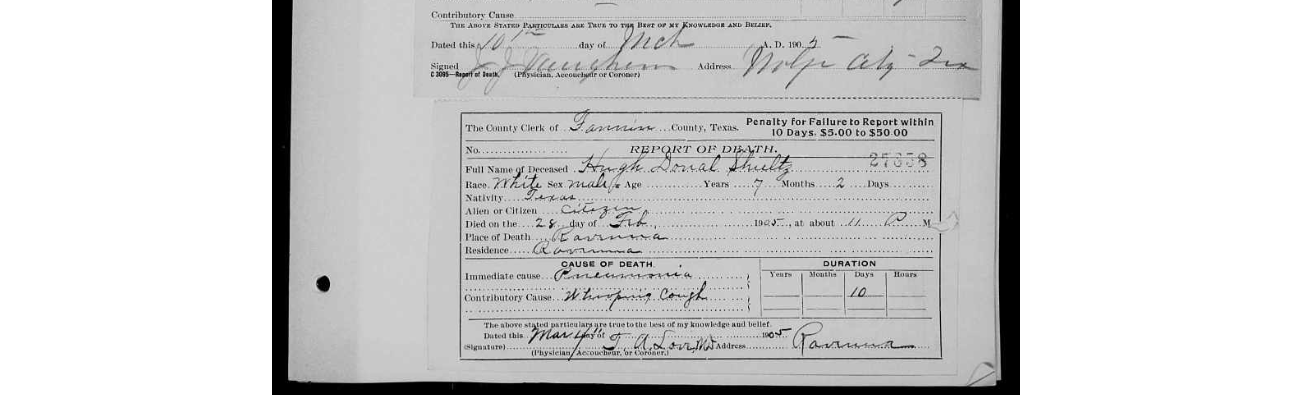 Contributory Cause
THE ABOVE STATED PARTICULARS ARE TRUE TO THE BEST OF MY KNOWLEDGE AND BELIEF.
Dated this 10th day of Mch A. D. 1905
Signed J J Vaughan Address Wolfe City Tex
C 3095—Report of Death. (Physician, Accoucheur or Coroner)
The County Clerk of Fannin County, Texas. Penalty for Failure to Report within
10 Days, $5.00 to $50.00
No. REPORT OF DEATH. 27658
Full Name of Deceased Hugh Donal Shultz
Race. White Sex Male Age Years 7 Months 2 Days
Nativity Texas
Alien or Citizen Citizen
Died on the 28 day of Feb, 1905, at about 11 P M
Place of Death Ravenna
Residence Ravenna
CAUSE OF DEATH DURATION
Immediate cause Pneumonia Years Months Days Hours
Contributory Cause Whooping Cough 10
The above stated particulars are true to the best of my knowledge and belief.
Dated this Mar 4th day of 1905
(Signature) T. A. Love, MD Address Ravenna
(Physician, Accoucheur, or Coroner.)